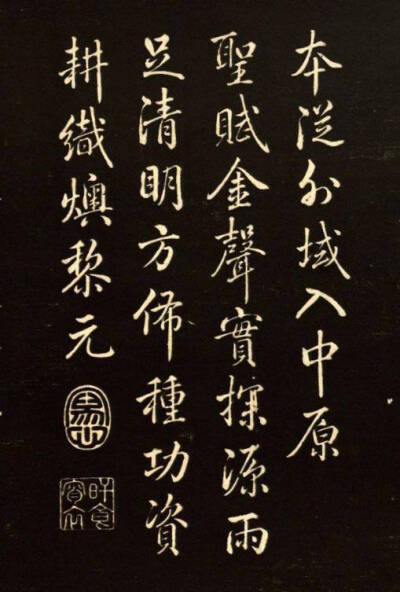 本從外域入中原
聖賦金聲實探源雨
足清明方佈種功資
耕織燠黎元
旰食
宵衣